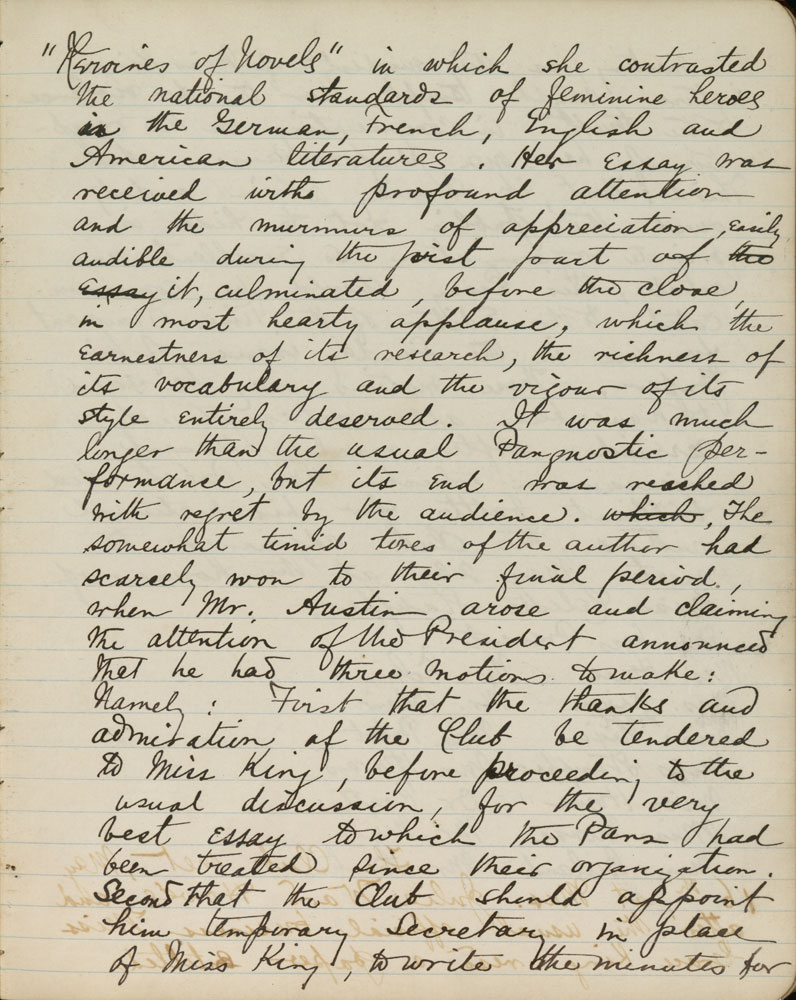 "Heroines of Novels" in which she contrasted
the national standards of feminine heroes
in the German, French, English and
American literatures. Her Essay was
received with profound attention
and the murmurs of appreciation, easily
audible during the first part of the
Essay it, culminated, before the close,
in most hearty applause, which the
Earnestness of its research, the richness of
its vocabulary and the vigour of its
style Entirely deserved. It was much
longer than the usual Pangnostic per-
formance, but its End was reached
with regret by the audience. which, The
somewhat timid tones of the author had
scarcely won to their final period,
when Mr. Austin arose and claiming
the attention of the President announced
that he had three motions to make:
Namely: First that the thanks and
admiration of the Club be tendered
to Miss King, before proceeding to the
usual discussion, for the very
best Essay to which the Pans had
been treated since their organization.
Second that the Club should appoint
him temporary Secretary in place
of Miss King, to write the minutes for